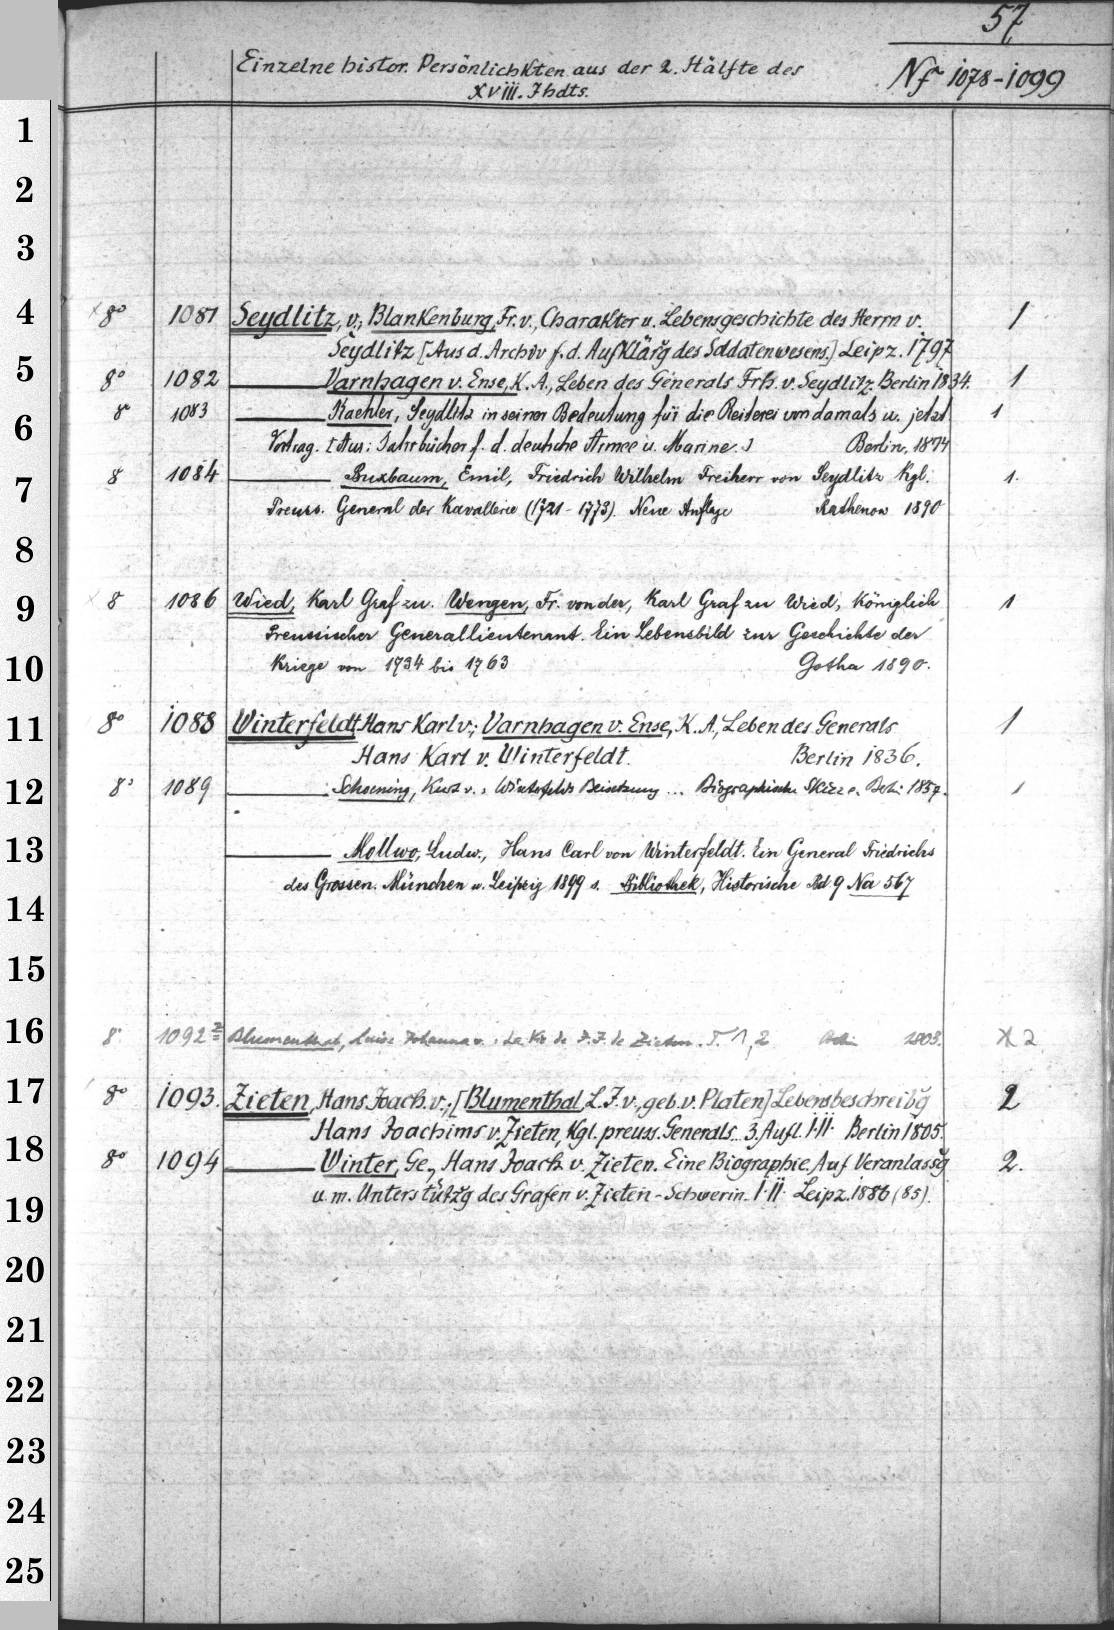 57
Einzelne histor. Persönlichkten aus der 2. Hälfte des
XVIII. Jhdts.
Nf 1078-1099
1
2
3
4
8° 1081 Seydlitz, v., Blankenburg, Fr. v., Charakter u. Lebensgeschichte des Herrn v. 1
Seydlitz [Aus d. Archiv f. d. Aufklärg des Soldatenwesens.] Leipz. 1797
5
8° 1082 Varnhagen v. Ense, K. A., Leben des Generals Frh. v. Seydlitz. Berlin 1834. 1
6
8° 1083 Kaehler, Seydlitz in seiner Bedeutung für die Reiterei von damals u. jetzt 1
Vortrag. [Aus: Jahrbücher f. d. deutsche Armee u. Marine.] Berlin, 1874
7
8 1084 Buxbaum, Emil, Friedrich Wilhelm Freiherr von Seydlitz Kgl. 1.
Preuss. General der Kavallerie (1721-1773). Neue Auflage Rathenow 1890
8
9
8 1086 Wied, Karl Graf zu. Wengen, Fr. von der, Karl Graf zu Wied, Königlich 1
Preussischer Generallieutenant. Ein Lebensbild zur Geschichte der
10
Kriege von 1734 bis 1763 Gotha 1890.
11
8° 1088 Winterfeldt, Hans Karl v.; Varnhagen v. Ense, K. A., Leben des Generals 1
Hans Karl v. Winterfeldt. Berlin 1836.
12
8° 1089 Schoening, Kurd v.: Winterfeldts Beisetzung ... Biographische Skizze. 1857. 1
13
Mollwo, Ludw., Hans Carl von Winterfeldt. Ein General Friedrichs
des Grossen. München u. Leipzig 1899 s. Bibliothek, Historische Bd 9 Na 567
14
15
16
8° 1092 Blumenthal, Luise Johanna v.: La Vie de de Zieten. T. 1, 2 1803. X 2
17
8° 1093. Zieten, Hans Joach. v.; [Blumenthal, L. J. v., geb. v. Platen] Lebensbeschreibg 2
Hans Joachims v. Zieten, Kgl. preuss. Generals.. 3. Aufl. I. II. Berlin 1805.
18
8° 1094 Winter, Ge., Hans Joach. v. Zieten. Eine Biographie. Auf Veranlassg 2.
u. m. Unterstützg des Grafen v. Zieten-Schwerin. I. II. Leipz. 1886 (85).
19
20
21
22
23
24
25